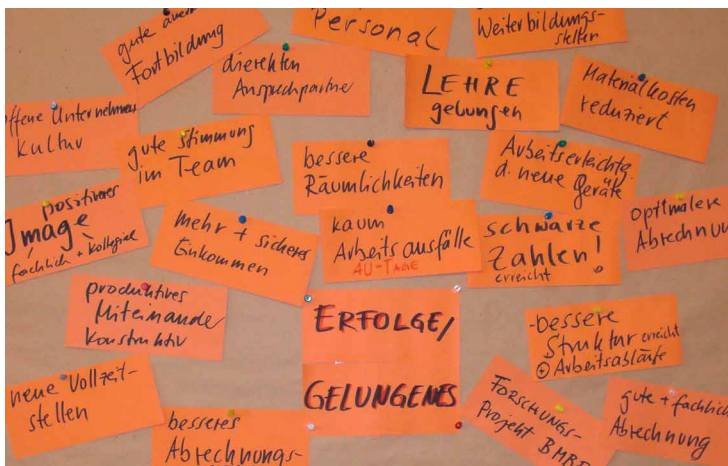 gute
Fortbildung
direkten
Ansprechpartner
Personal
Weiterbildungs-
stellen
LEHRE
gelungen
Materialkosten
reduziert
offene Unternehmens
Kultur
gute Stimmung
im Team
bessere
Räumlichkeiten
Arbeitserleichte.
d. neue Geräte
positives
Image
fachlich + kollegial
mehr + sicheres
Einkommen
kaum
Arbeitsausfälle
AU-TAGE
schwarze
Zahlen!
erreicht
optimalere
Abrechnun
produktives
Miteinande
konstruktiv
ERFOLGE/
GELUNGENES
-bessere
Struktur erreicht
+ Arbeitsabläufe
neue Vollzeit-
stellen
besseres
Abrechnungs-
FORSCHUNGS-
Projekt BMBF
gute + fachlich
Abrechnung